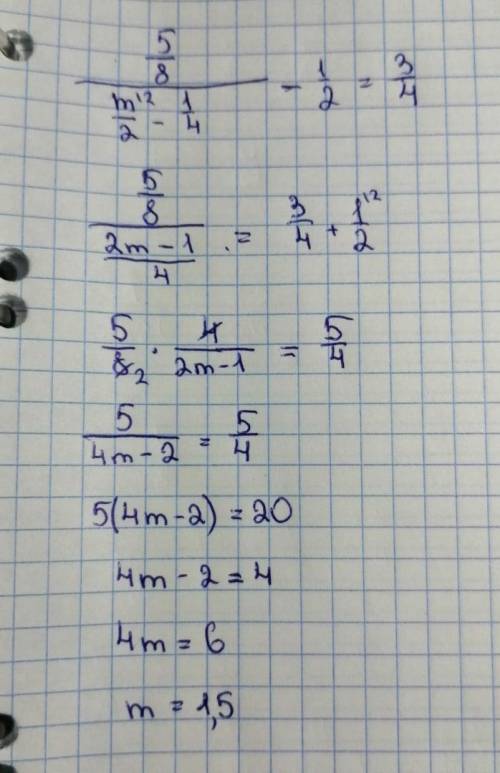 \frac{\frac{5}{8}}{\frac{m^{12}}{2} - \frac{1}{4}} - \frac{1}{2} = \frac{3}{4}
\frac{\frac{5}{8}}{\frac{2m-1}{4}} = \frac{3}{4} + \frac{1^{12}}{2}
\frac{5}{8_2} \cdot \frac{4}{2m-1} = \frac{5}{4}
\frac{5}{4m-2} = \frac{5}{4}
5(4m-2) = 20
4m - 2 = 4
4m = 6
m = 1,5